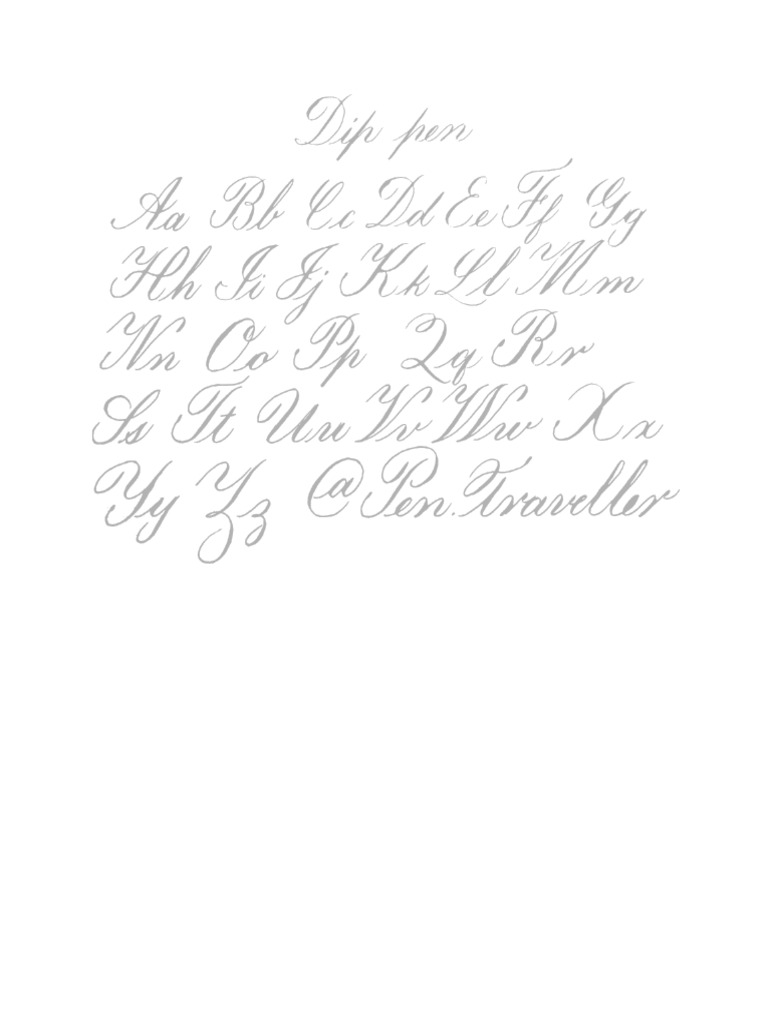 Dip pen
Aa Bb Cc Dd Ee Ff Gg
Hh Ii Jj Kk Ll Mm
Nn Oo Pp Qq Rr
Ss Tt Uu Vv Ww Xx
Yy Zz @Pen.Traveller